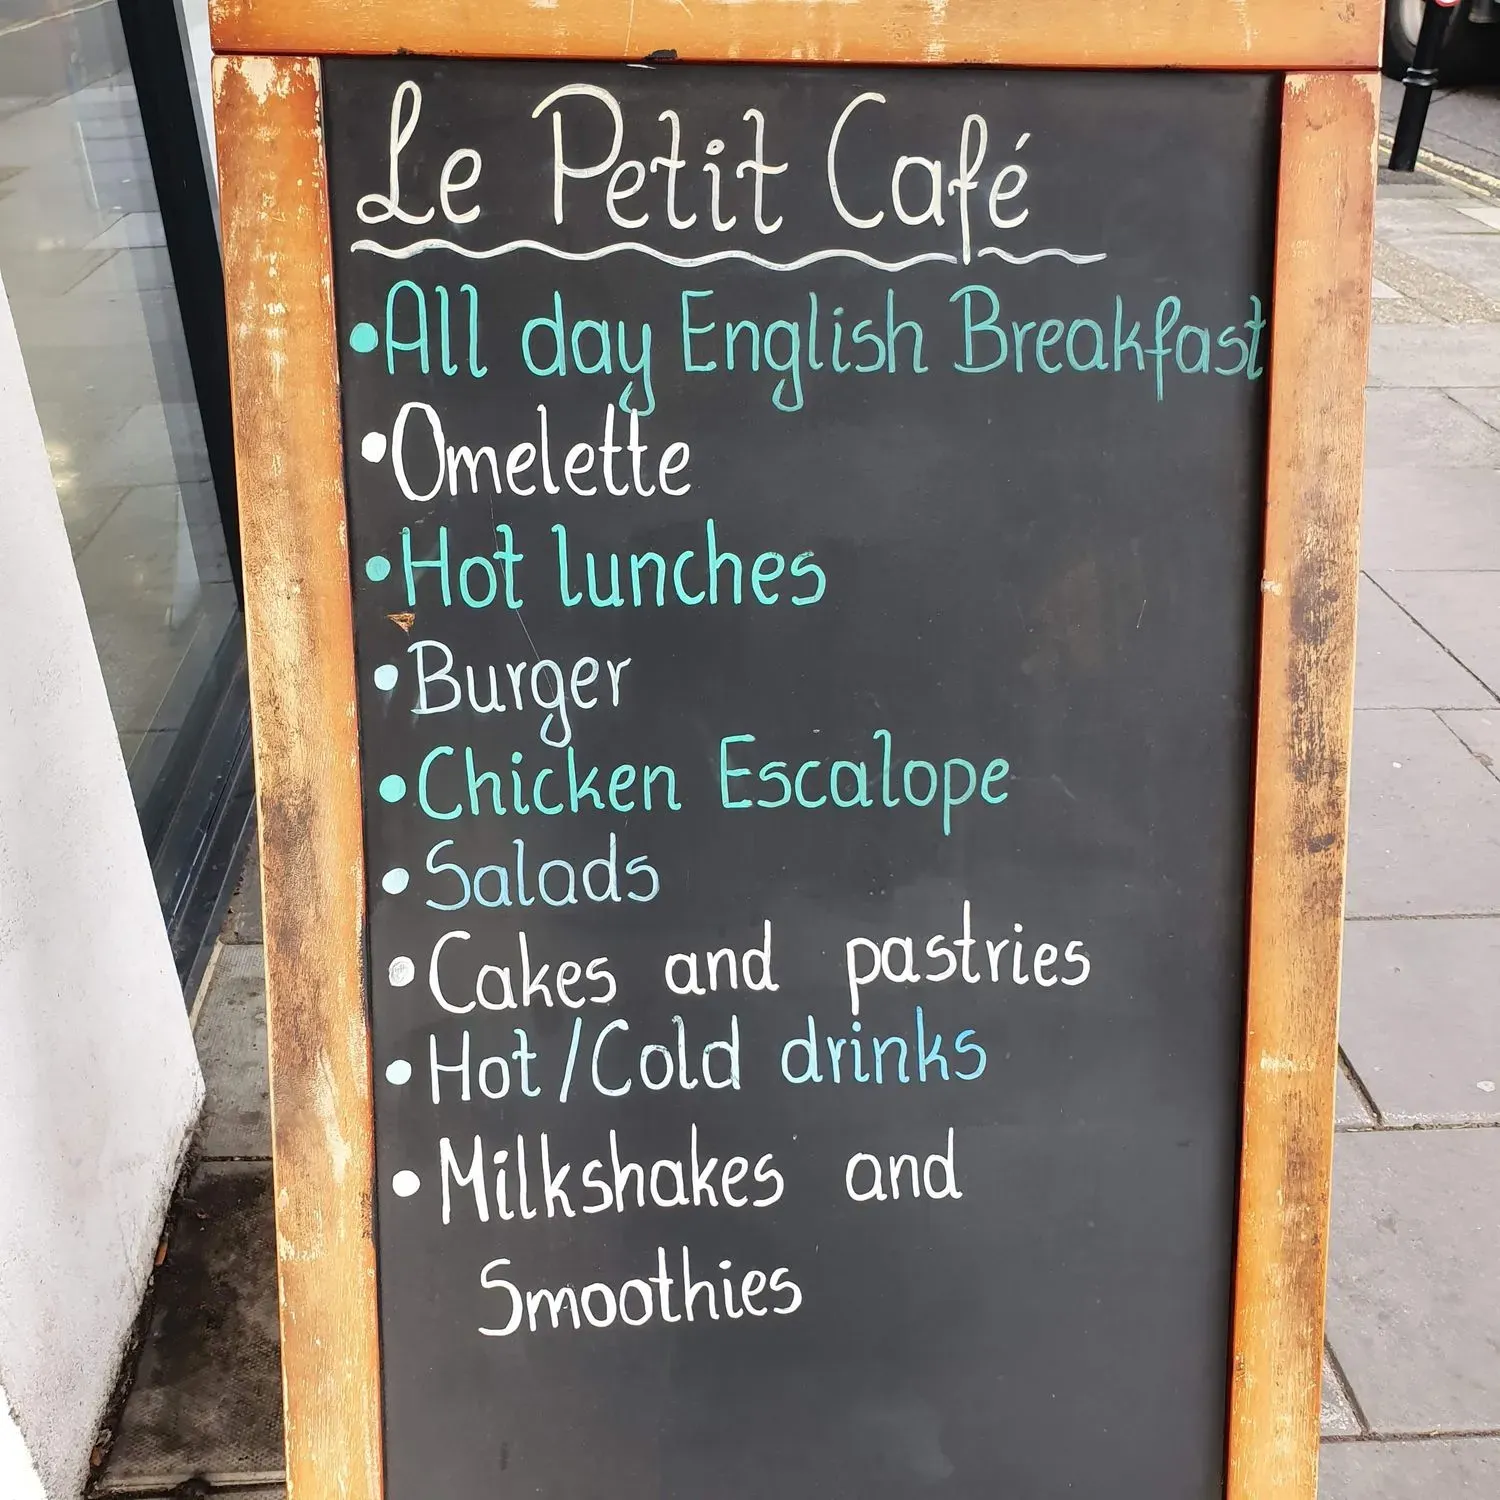 Le Petit Café
•All day English Breakfast
•Omelette
•Hot lunches
•Burger
•Chicken Escalope
•Salads
•Cakes and pastries
•Hot/Cold drinks
•Milkshakes and
Smoothies